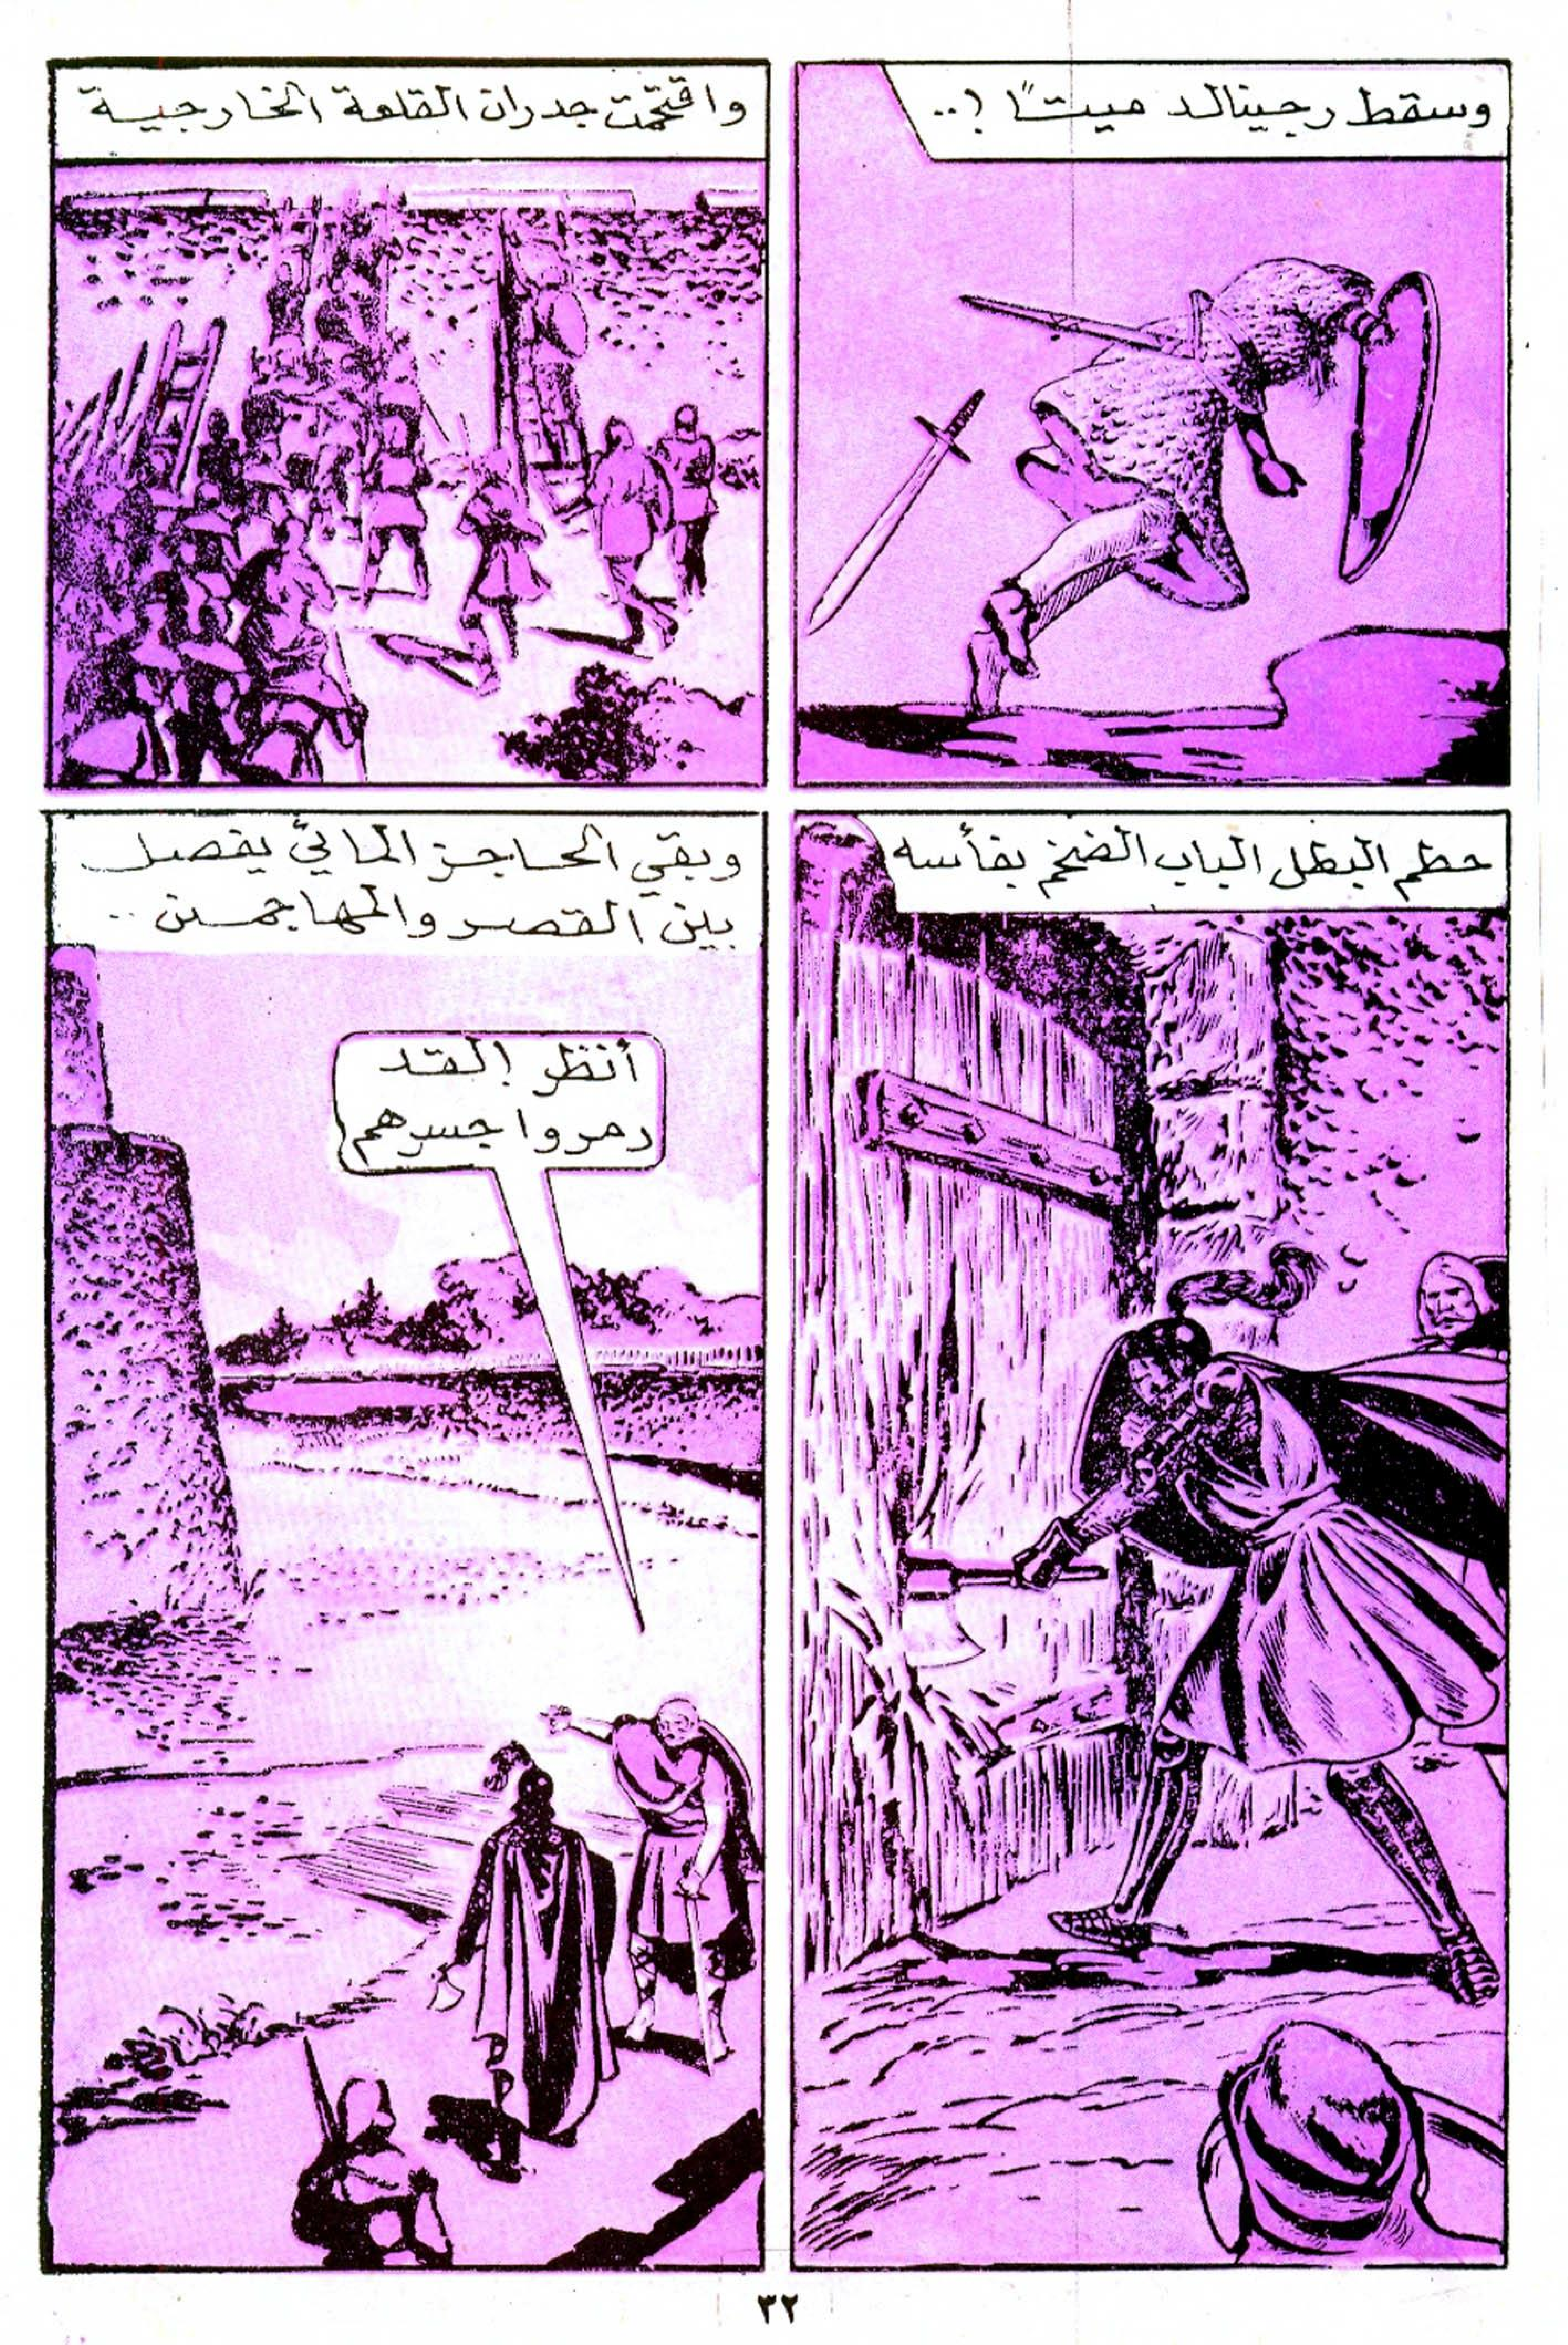 وسقط رجينالد ميتاً !..
واقتحمت جدران القلعة الخارجية
حطم البطل الباب الضخم بفأسه
وبقي الحاجز المائي يفصل
بين القصر والمهاجمين ..
أنظر ! لقد
دمروا جسرهم
٣٢